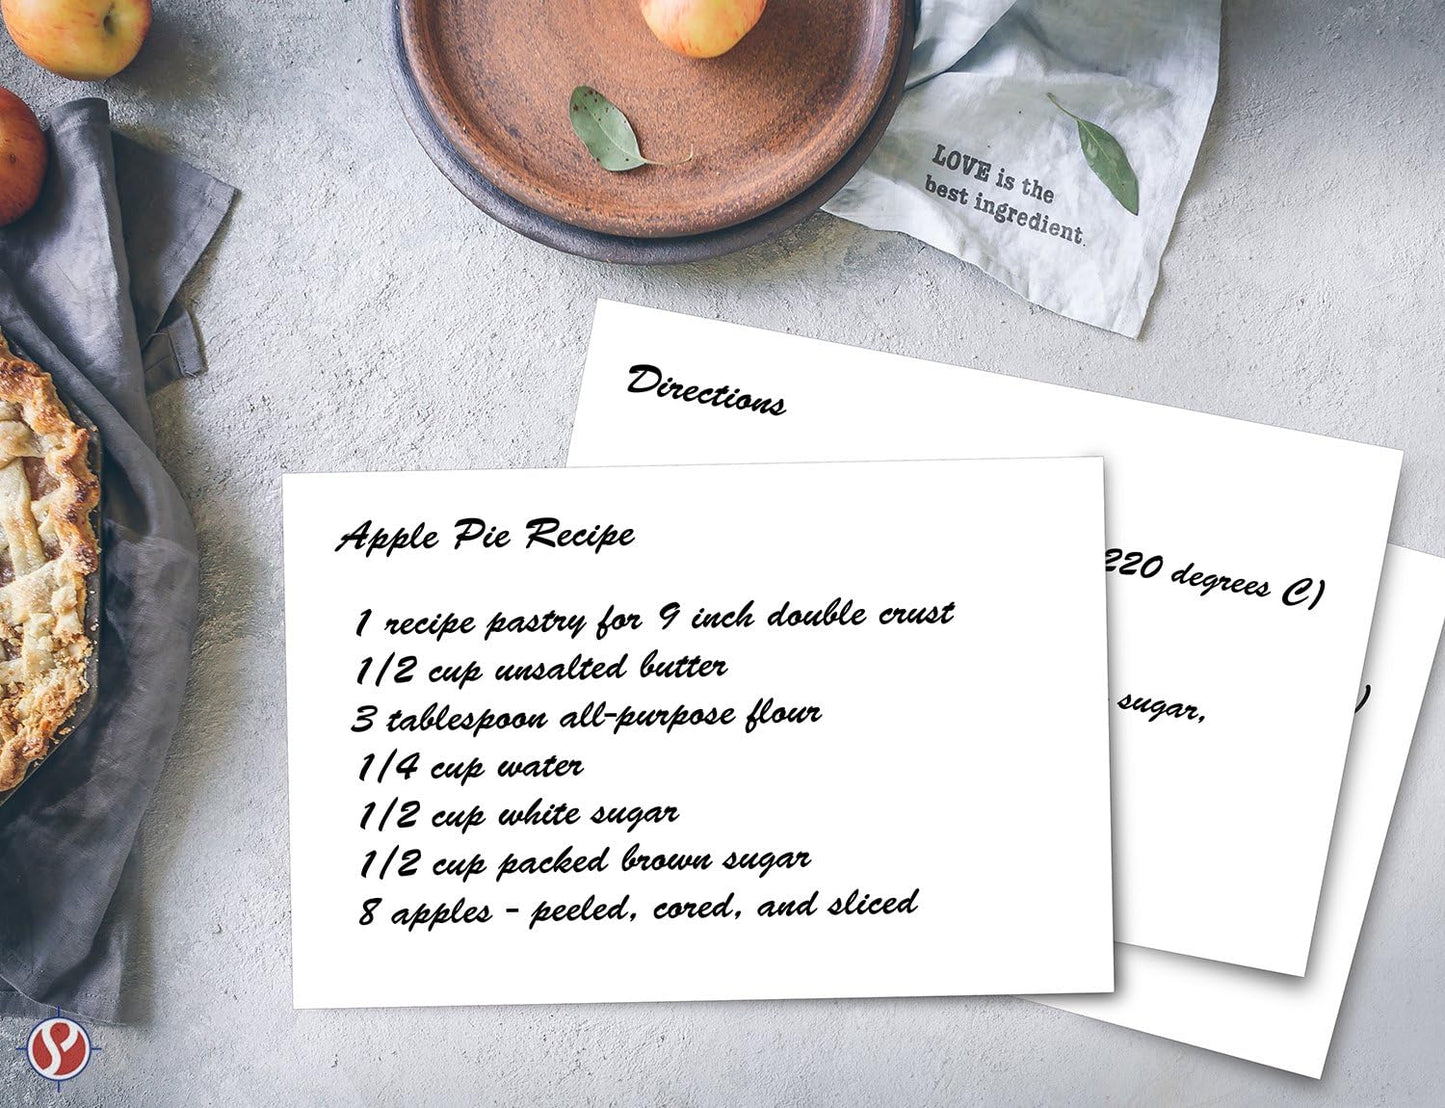 LOVE is the
best ingredient.
Directions
220 degrees C)
sugar,
)
Apple Pie Recipe
1 recipe pastry for 9 inch double crust
1/2 cup unsalted butter
3 tablespoon all-purpose flour
1/4 cup water
1/2 cup white sugar
1/2 cup packed brown sugar
8 apples - peeled, cored, and sliced